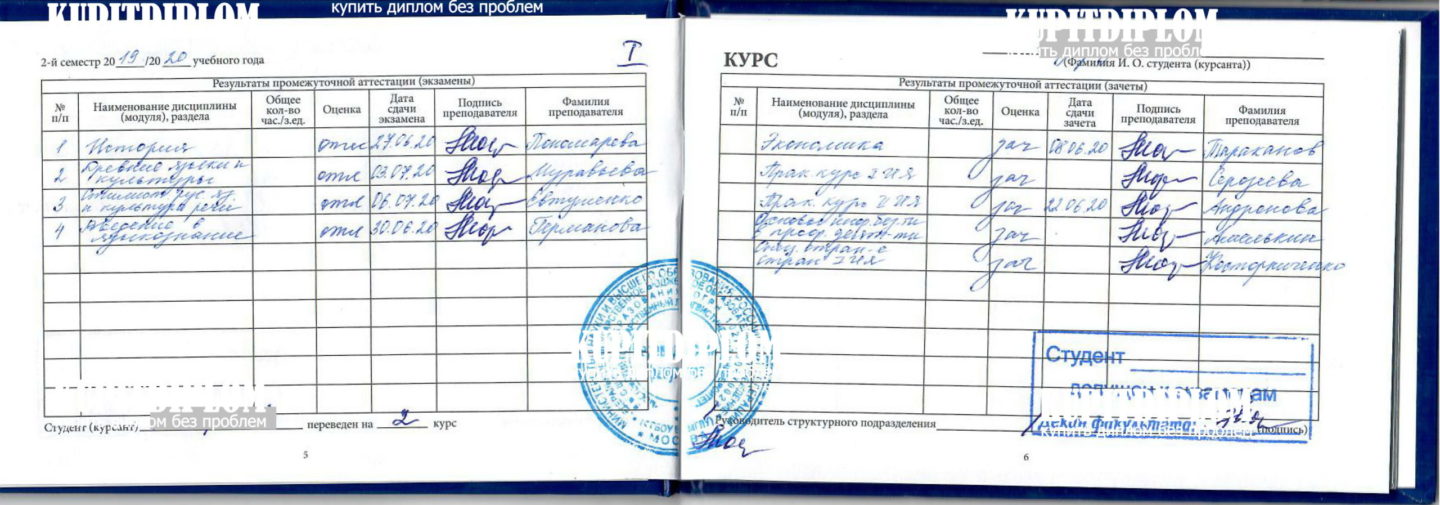 KUPITDIPLOM
купить диплом без проблем
2-й семестр 2019/2020 учебного года
I
Результаты промежуточной аттестации (экзамены)
№ п/п
Наименование дисциплины (модуля), раздела
Общее кол-во час./з.ед.
Оценка
Дата сдачи экзамена
Подпись преподавателя
Фамилия преподавателя
1 История отл 27.06.20 Пономарева
2 Древние языки и культуры отл 03.07.20 Муравьева
3 и культура речи отл 06.07.20 Евтушенко
4 Введение в языкознание отл 30.06.20 Германова
KUPITDIPLOM
без проблем
Студент (курсант) переведен на 2 курс
5
KUPITDIPLOM
купить диплом без пробл
КУРС
(Фамилия И. О. студента (курсанта))
Результаты промежуточной аттестации (зачеты)
№ п/п
Наименование дисциплины (модуля), раздела
Общее кол-во час./з.ед.
Оценка
Дата сдачи зачета
Подпись преподавателя
Фамилия преподавателя
Экономика зач 08.06.20 Тараканов
Прак курс 2 ИЯ зач Сергеева
Прак. курс зач 22.06.20 Андронова
Основы зач
стран 2 ИЯ зач
KUPITDIPLOM
Студент
Декан факультета
купить диплом без проблем
Руководитель структурного подразделения (подпись)
6